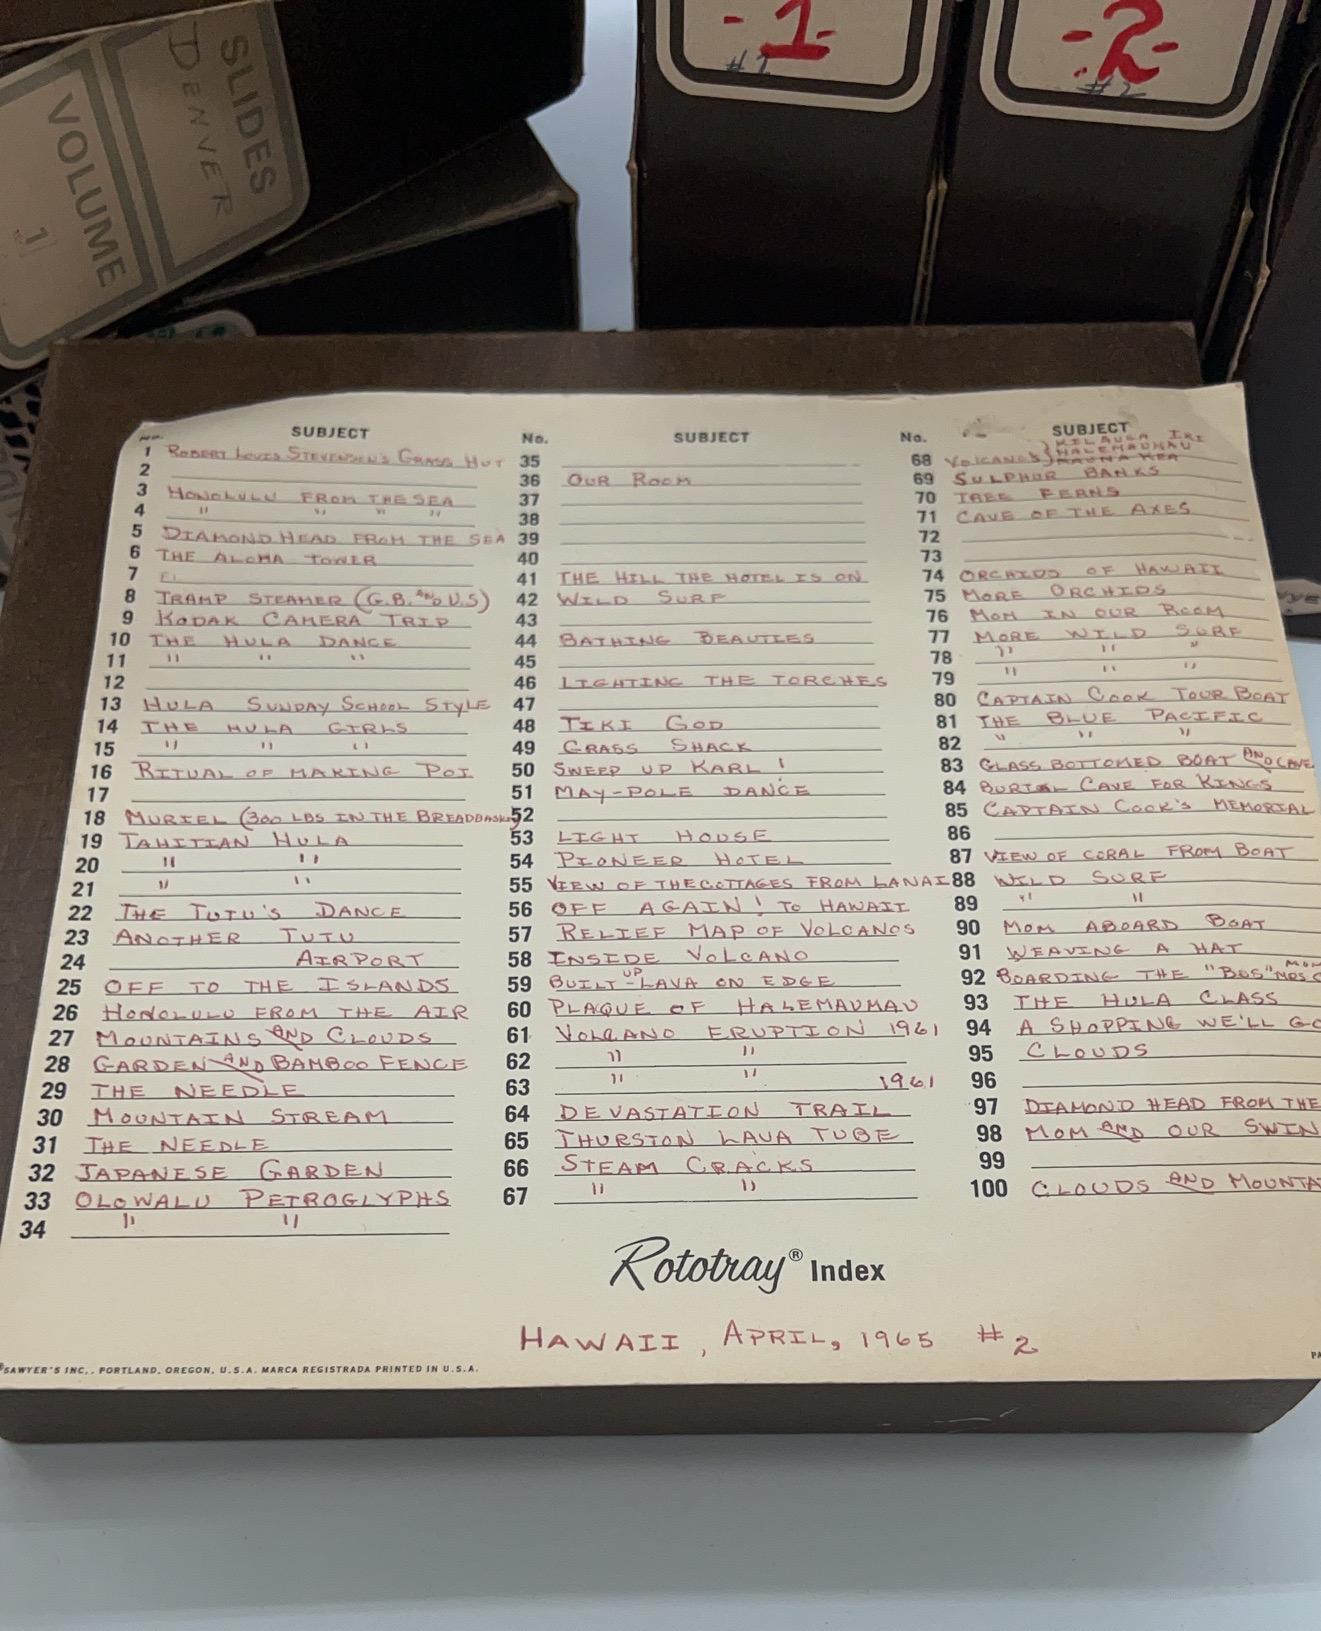 SLIDES
DENVER
VOLUME
1
-1-
#1
-2-
#2
No. SUBJECT
1 ROBERT LOUIS STEVENSON'S GRASS HUT
2
3 HONOLULU FROM THE SEA
4 " " " "
5 DIAMOND HEAD FROM THE SEA
6 THE ALOHA TOWER
7
8 TRAMP STEAMER (G.B. AND U.S)
9 KODAK CAMERA TRIP
10 THE HULA DANCE
11 " " "
12
13 HULA SUNDAY SCHOOL STYLE
14 THE HULA GIRLS
15 " " "
16 RITUAL OF MAKING POI
17
18 MURIEL (300 LBS IN THE BREADBASKET)
19 TAHITIAN HULA
20 " "
21 " "
22 THE TUTU'S DANCE
23 ANOTHER TUTU
24 AIRPORT
25 OFF TO THE ISLANDS
26 HONOLULU FROM THE AIR
27 MOUNTAINS AND CLOUDS
28 GARDEN AND BAMBOO FENCE
29 THE NEEDLE
30 MOUNTAIN STREAM
31 THE NEEDLE
32 JAPANESE GARDEN
33 OLOWALU PETROGLYPHS
34 " "
No. SUBJECT
35
36 OUR ROOM
37
38
39
40
41 THE HILL THE HOTEL IS ON
42 WILD SURF
43
44 BATHING BEAUTIES
45
46 LIGHTING THE TORCHES
47
48 TIKI GOD
49 GRASS SHACK
50 SWEEP UP KARL!
51 MAY-POLE DANCE
52
53 LIGHT HOUSE
54 PIONEER HOTEL
55 VIEW OF THE COTTAGES FROM LANAI
56 OFF AGAIN! TO HAWAII
57 RELIEF MAP OF VOLCANOS
58 INSIDE VOLCANO
59 BUILT-UP LAVA ON EDGE
60 PLAQUE OF HALEMAUMAU
61 VOLCANO ERUPTION 1961
62 " "
63 " " 1961
64 DEVASTATION TRAIL
65 THURSTON LAVA TUBE
66 STEAM CRACKS
67 " "
No. SUBJECT
KILAUEA IKI
HALEMAUMAU
68 VOLCANO'S} MAUNA KEA
69 SULPHUR BANKS
70 TREE FERNS
71 CAVE OF THE AXES
72
73
74 ORCHIDS OF HAWAII
75 MORE ORCHIDS
76 MOM IN OUR ROOM
77 MORE WILD SURF
78 " " "
79 " " "
80 CAPTAIN COOK TOUR BOAT
81 THE BLUE PACIFIC
82 " " "
83 GLASS BOTTOMED BOAT AND CAVE
84 BURIAL CAVE FOR KINGS
85 CAPTAIN COOK'S MEMORIAL
86
87 VIEW OF CORAL FROM BOAT
88 WILD SURF
89 " "
90 MOM ABOARD BOAT
91 WEAVING A HAT
92 BOARDING THE "BUS" MOM MRS. C
93 THE HULA CLASS
94 A SHOPPING WE'LL GO
95 CLOUDS
96
97 DIAMOND HEAD FROM THE
98 MOM AND OUR SWIN
99
100 CLOUDS AND MOUNTA
Rototray® Index
HAWAII, APRIL, 1965 #2
®SAWYER'S INC., PORTLAND, OREGON, U.S.A. MARCA REGISTRADA PRINTED IN U.S.A.
PA